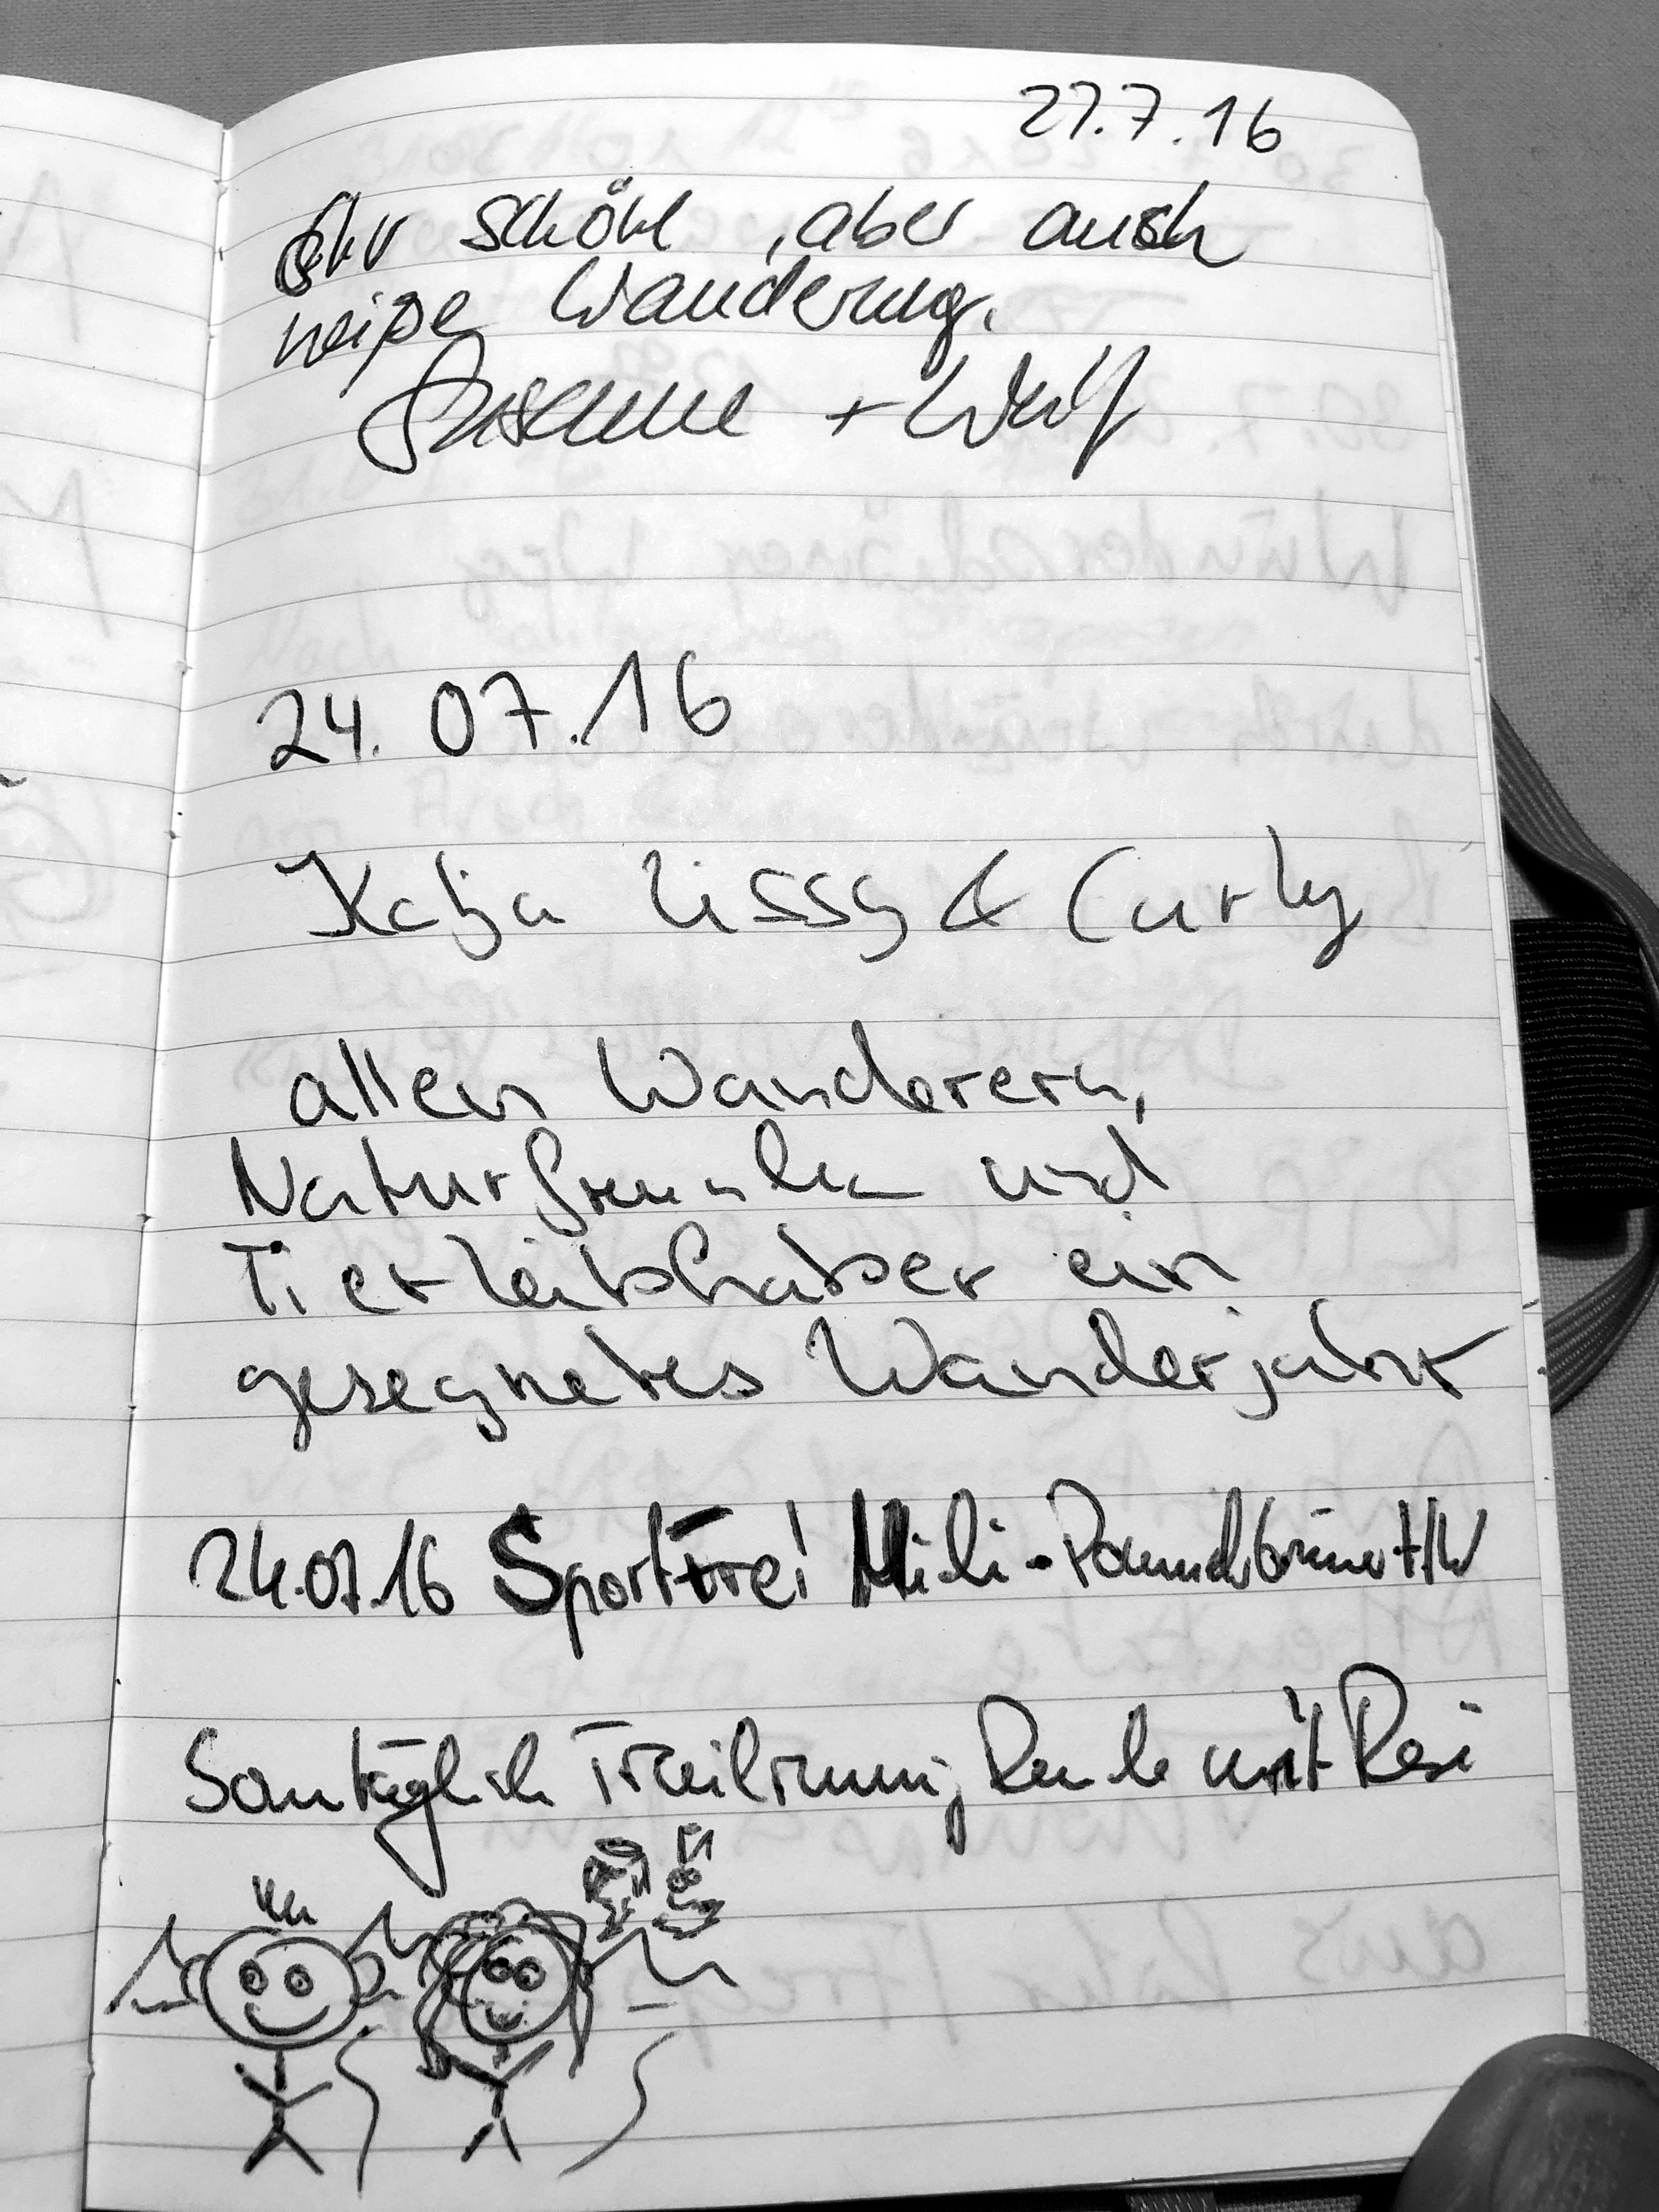 27.7.16
sehr schöne, aber auch
heiße Wanderung.
Susanne + Wulf
24.07.16
Katja Lissy & Curly
allen Wanderern,
Naturfreunden und
Tierliebhaber ein
gesegnetes Wanderjahr
24.07.16 Sportfrei!
Sonntäglich Trailrunning Runde mit Resi